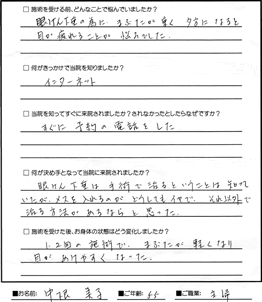 □ 施術を受ける前、どんなことで悩んでいましたか?
眼けん下垂の為に、まぶたが重く 夕方になると
目が疲れることが 悩みでした。
□ 何がきっかけで当院を知りましたか?
インターネット
□ 当院を知ってすぐに来院されましたか?されなかったとしたらなぜですか?
すぐに 予約の電話をした
□ 何が決め手となって当院に来院されましたか?
眼けん下垂は 手術で治るということは 知って
いたが、メスを入れるのが どうしてもイヤで、それ以外で
治る方法があるなら と思った。
□ 施術を受けた後、お身体の状態はどう変化しましたか?
1.2回の施術で、まぶたが軽くなり
目があけやすくなった。
■お名前: 中根 ■ご年齢: ■ご職業: 主婦